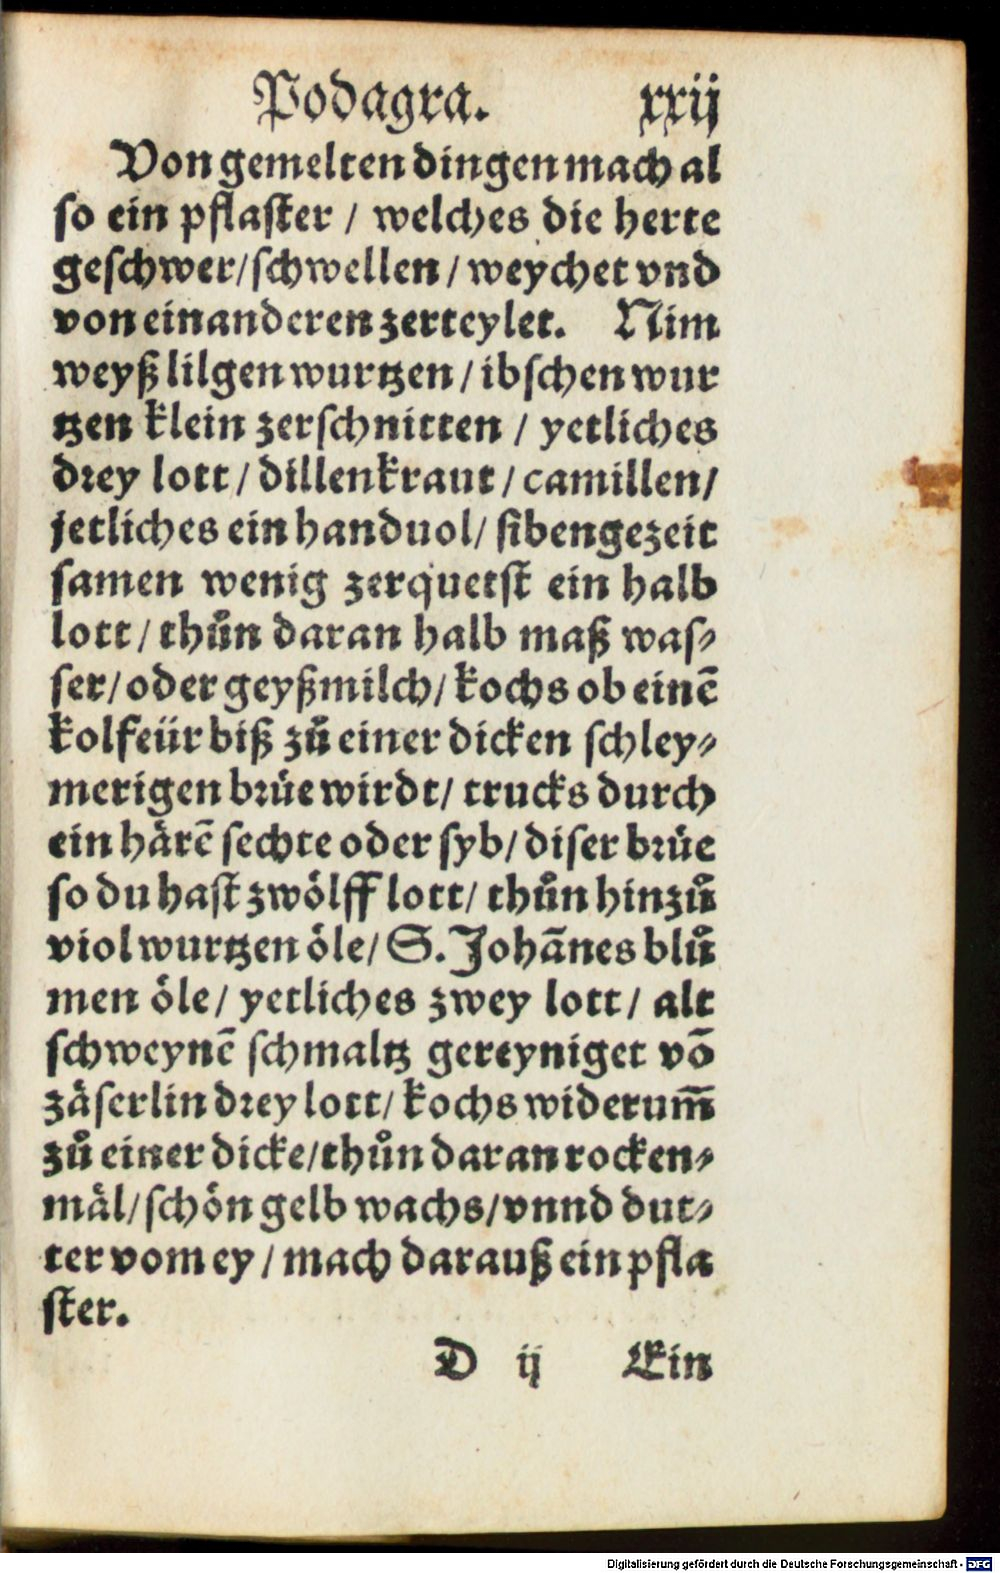 Podagra. xxij
Von gemelten dingen mach al
so ein pflaster / welches die herte
geschwer/schwellen / weychet vnd
von einanderen zerteylet. Nim
weyß lilgen wurtzen / ibschen wur
tzen klein zerschnitten / yetliches
drey lott / dillenkraut / camillen/
jetliches ein handuol / sibengezeit
samen wenig zerquetst ein halb
lott / thůn daran halb maß was⸗
ser/ oder geyßmilch/ kochs ob einē
kolfeür biß zů einer dicken schley⸗
merigen brüe wirdt/ trucks durch
ein härē sechte oder syb/ diser brüe
so du hast zwölff lott/ thůn hinzů
viol wurtzen öle/ S. Johānes blů
men öle/ yetliches zwey lott/ alt
schweynē schmaltz gereyniget vō
zäserlin drey lott/ kochs widerum̄
zů einer dicke/thůn daran rocken⸗
mäl/schön gelb wachs/vnnd dut⸗
ter vom ey / mach darauß ein pfla
ster.
D ij Ein
Digitalisierung gefördert durch die Deutsche Forschungsgemeinschaft - DFG